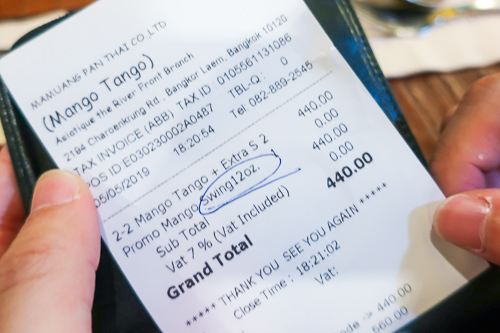 MAMUANG PAN THAI CO.,LTD
(Mango Tango)
Asiatique the River Front Branch
2194 Charoenkrung Rd., Bangkor Laem, Bangkok 10120
TAX INVOICE (ABB) TAX ID 0105561131086
POS ID E030230002A0487 TBL-Q: 0
05/05/2019 18:20:54 Tel 082-889-2545
2-2 Mango Tango + Extra S. 2 440.00
Promo Mango Swing12oz. 1 0.00
Sub Total 440.00
Vat 7 % (Vat Included) 0.00
Grand Total 440.00
***** THANK YOU SEE YOU AGAIN *****
Close Time : 18:21:02
Vat:
-> 440.00